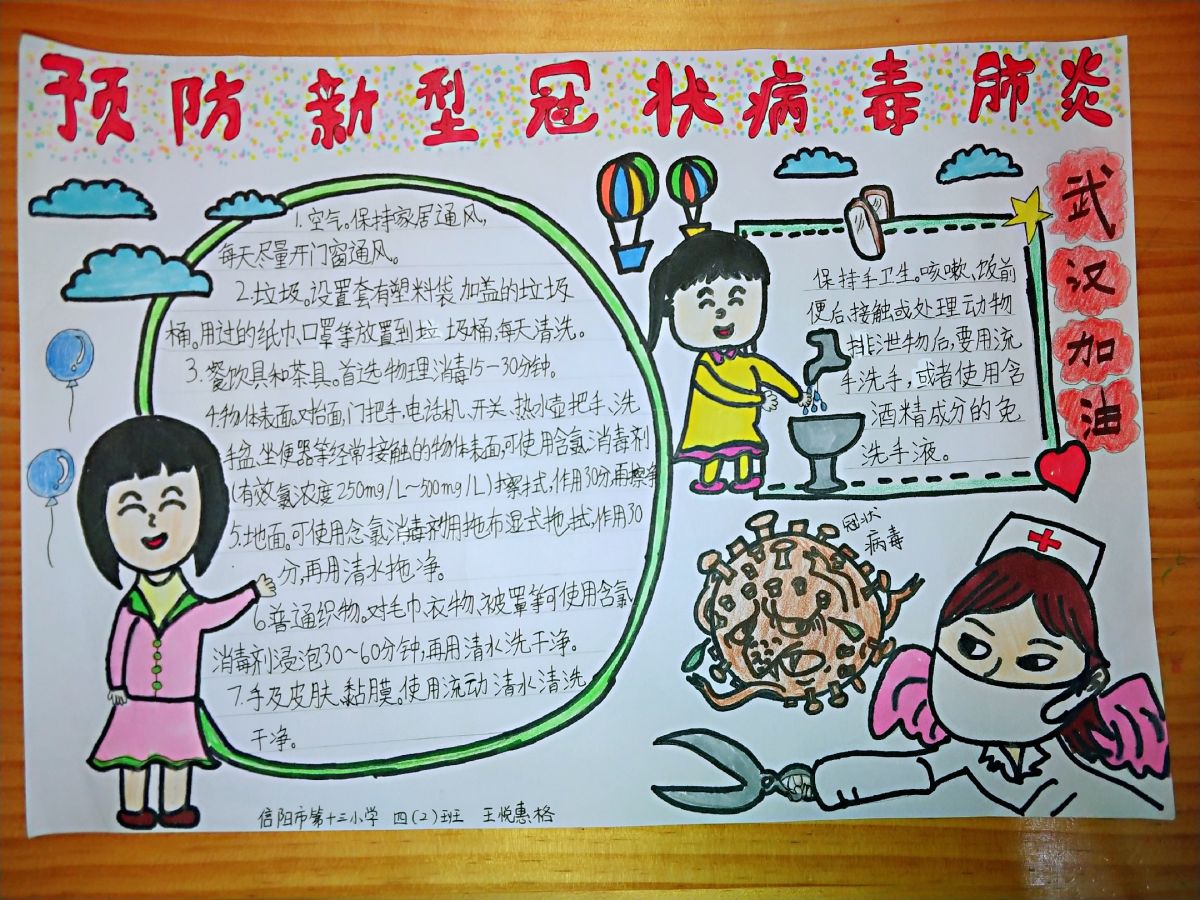 预防新型冠状病毒肺炎
1.空气。保持家居通风,
每天尽量开门窗通风。
2.垃圾。设置套有塑料袋加盖的垃圾
桶。用过的纸巾、口罩等放置到垃圾桶,每天清洗。
3.餐饮具和茶具。首选物理消毒15-30分钟。
4.物体表面。对台面,门把手、电话机、开关、热水壶把手、洗
手盆、坐便器等经常接触的物体表面,可使用含氯消毒剂
(有效氯浓度250mg/L~500mg/L)擦拭,作用30分,再擦净
5.地面。可使用含氯消毒剂用拖布湿式拖拭,作用30
分,再用清水拖净。
6.普通织物。对毛巾、衣物、被罩等可使用含氯
消毒剂浸泡30~60分钟,再用清水洗干净。
7.手及皮肤、黏膜。使用流动清水清洗
干净。
信阳市第十三小学 四(2)班 王悦惠格
保持手卫生。咳嗽、饭前
便后、接触或处理动物
排泄物后,要用流
水洗手,或者使用含
酒精成分的免
洗手液。
武汉加油
冠状
病毒